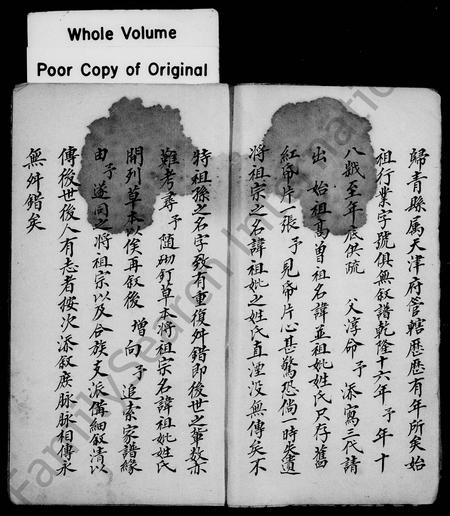 Whole Volume
Poor Copy of Original
歸青縣属天津府管轄歷歷有年所矣始
祖行業字號俱無叙譜乾隆十六年予年十
八歲至年底供疏 父淳命予添寫三代請
出 始祖髙曾祖名諱並祖妣姓氏只存舊
紅帋片一張予見帋片心甚驚恐倘一時失遺
將祖宗之名諱祖妣之姓氏直湮没無傳矣不
特祖孫之名字致有重復舛錯即後世之軰数亦
難考尋予随砌釘草本將祖宗名諱祖妣姓氏
開列草本以俟再叙後 增向予追索家譜緣
由予遂同之將祖宗以及合族支派俻細叙清以
傳後世後人有志者按次添叙庶脉脉相傳永
無舛錯矣
FamilySearch International